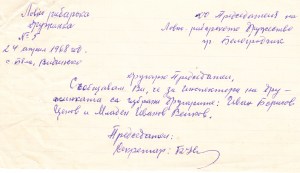 Ловно рибарска
дружинка
№ 1
24 април 1968 год.
Видинско
До Председателя на
Ловно рибарското Дружество
гр. Белоградчик
другарю Председател,
Съобщавам Ви, че за инспектори на дру-
жинката са избрани другарите: Иванов
Ценов и Младен Иванов
Председател:
Секретар: